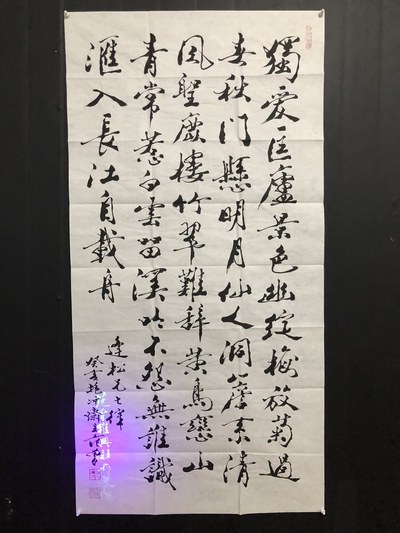 獨愛匡廬景色幽綻梅放菊過
春秋門懸明月仙人洞簷素清
風聖樓竹翠難辭黄鳥戀山
青常惹白雲留溪吟不怨無誰識
滙入長江自載舟
松
癸